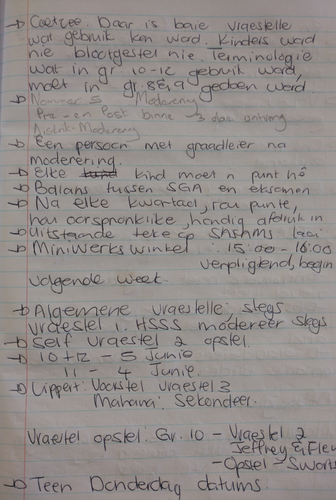 → Coetzee. Daar is baie vraestelle
wat gebruik kan word. Kinders word
nie blootgestel nie. Terminologie
wat in gr 10-12 gebruik word,
moet in gr. 8 & 9 gedoen word
→ Nommer Moderering
Pre- en Post binne 3 dae ontvang
Moderering
→ Een persoon met graadleier na
moderering.
→ Elke kind moet 'n punt hê
→ Balans tussen SGA en eksamen
→ Na elke kwartaal, rou punte,
hou oorspronklike, handig afdruk in
→ Uitstaande teke op
→ Miniwerkswinkel : 15:00 - 16:00
verpligtend, begin
volgende week.
→ Algemene vraestelle, slegs
vraestel 1. HSSS modereer slegs
→ Self vraestel 2 opstel.
→ 10 + 12 - 5 Junie
11 - 4 Junie.
→ Lippert: Voorstel vraestel 3
Maharia: Sekondeer.
Vraestel opstel: Gr. 10 - Vraestel 2
Jeffrey & Fleu
- Opstel - Swart
→ Teen Donderdag datums.